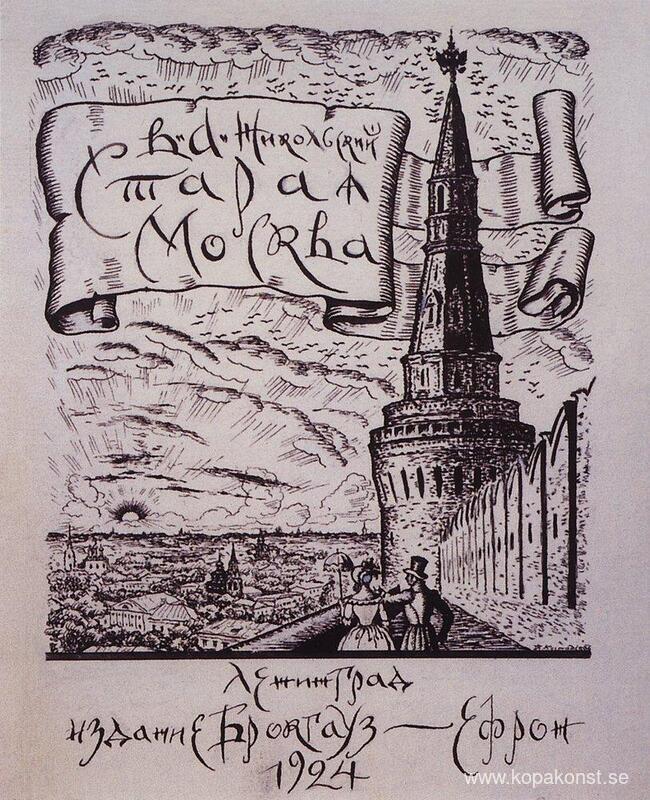 В. А. Никольский
Старая
Москва
Ленинград
издание Брокгауз — Ефрон
1924
www.kopakonst.se